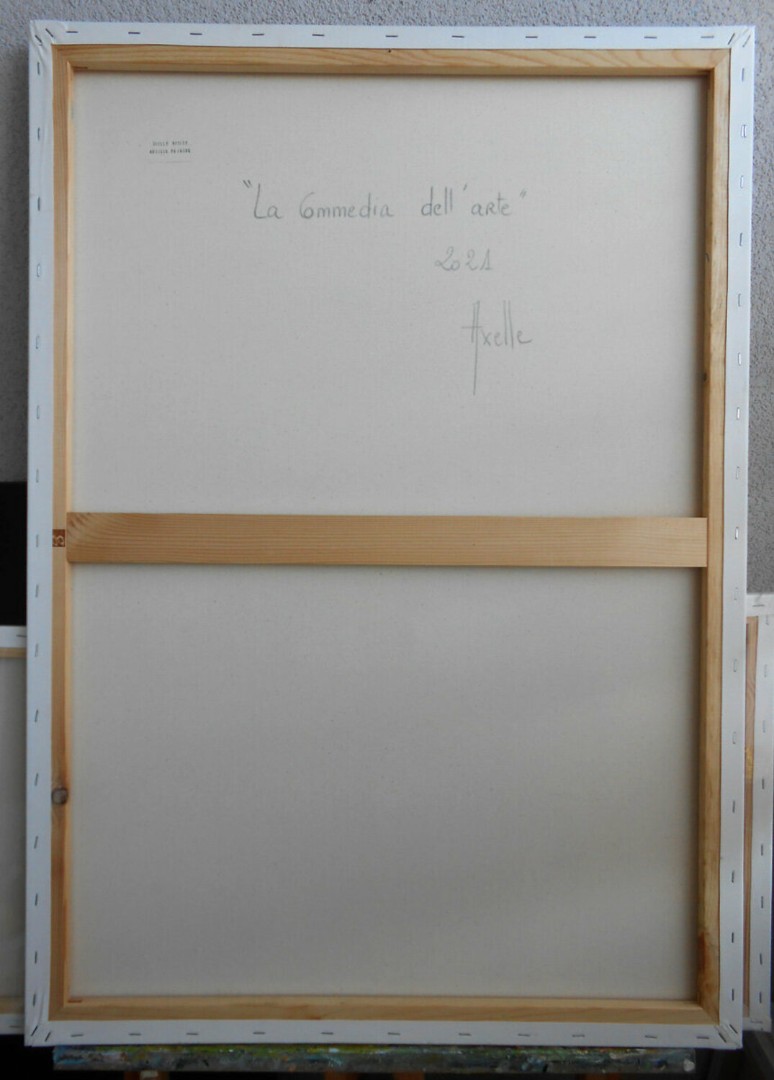 "La Commedia dell'arte"
2021
Axelle